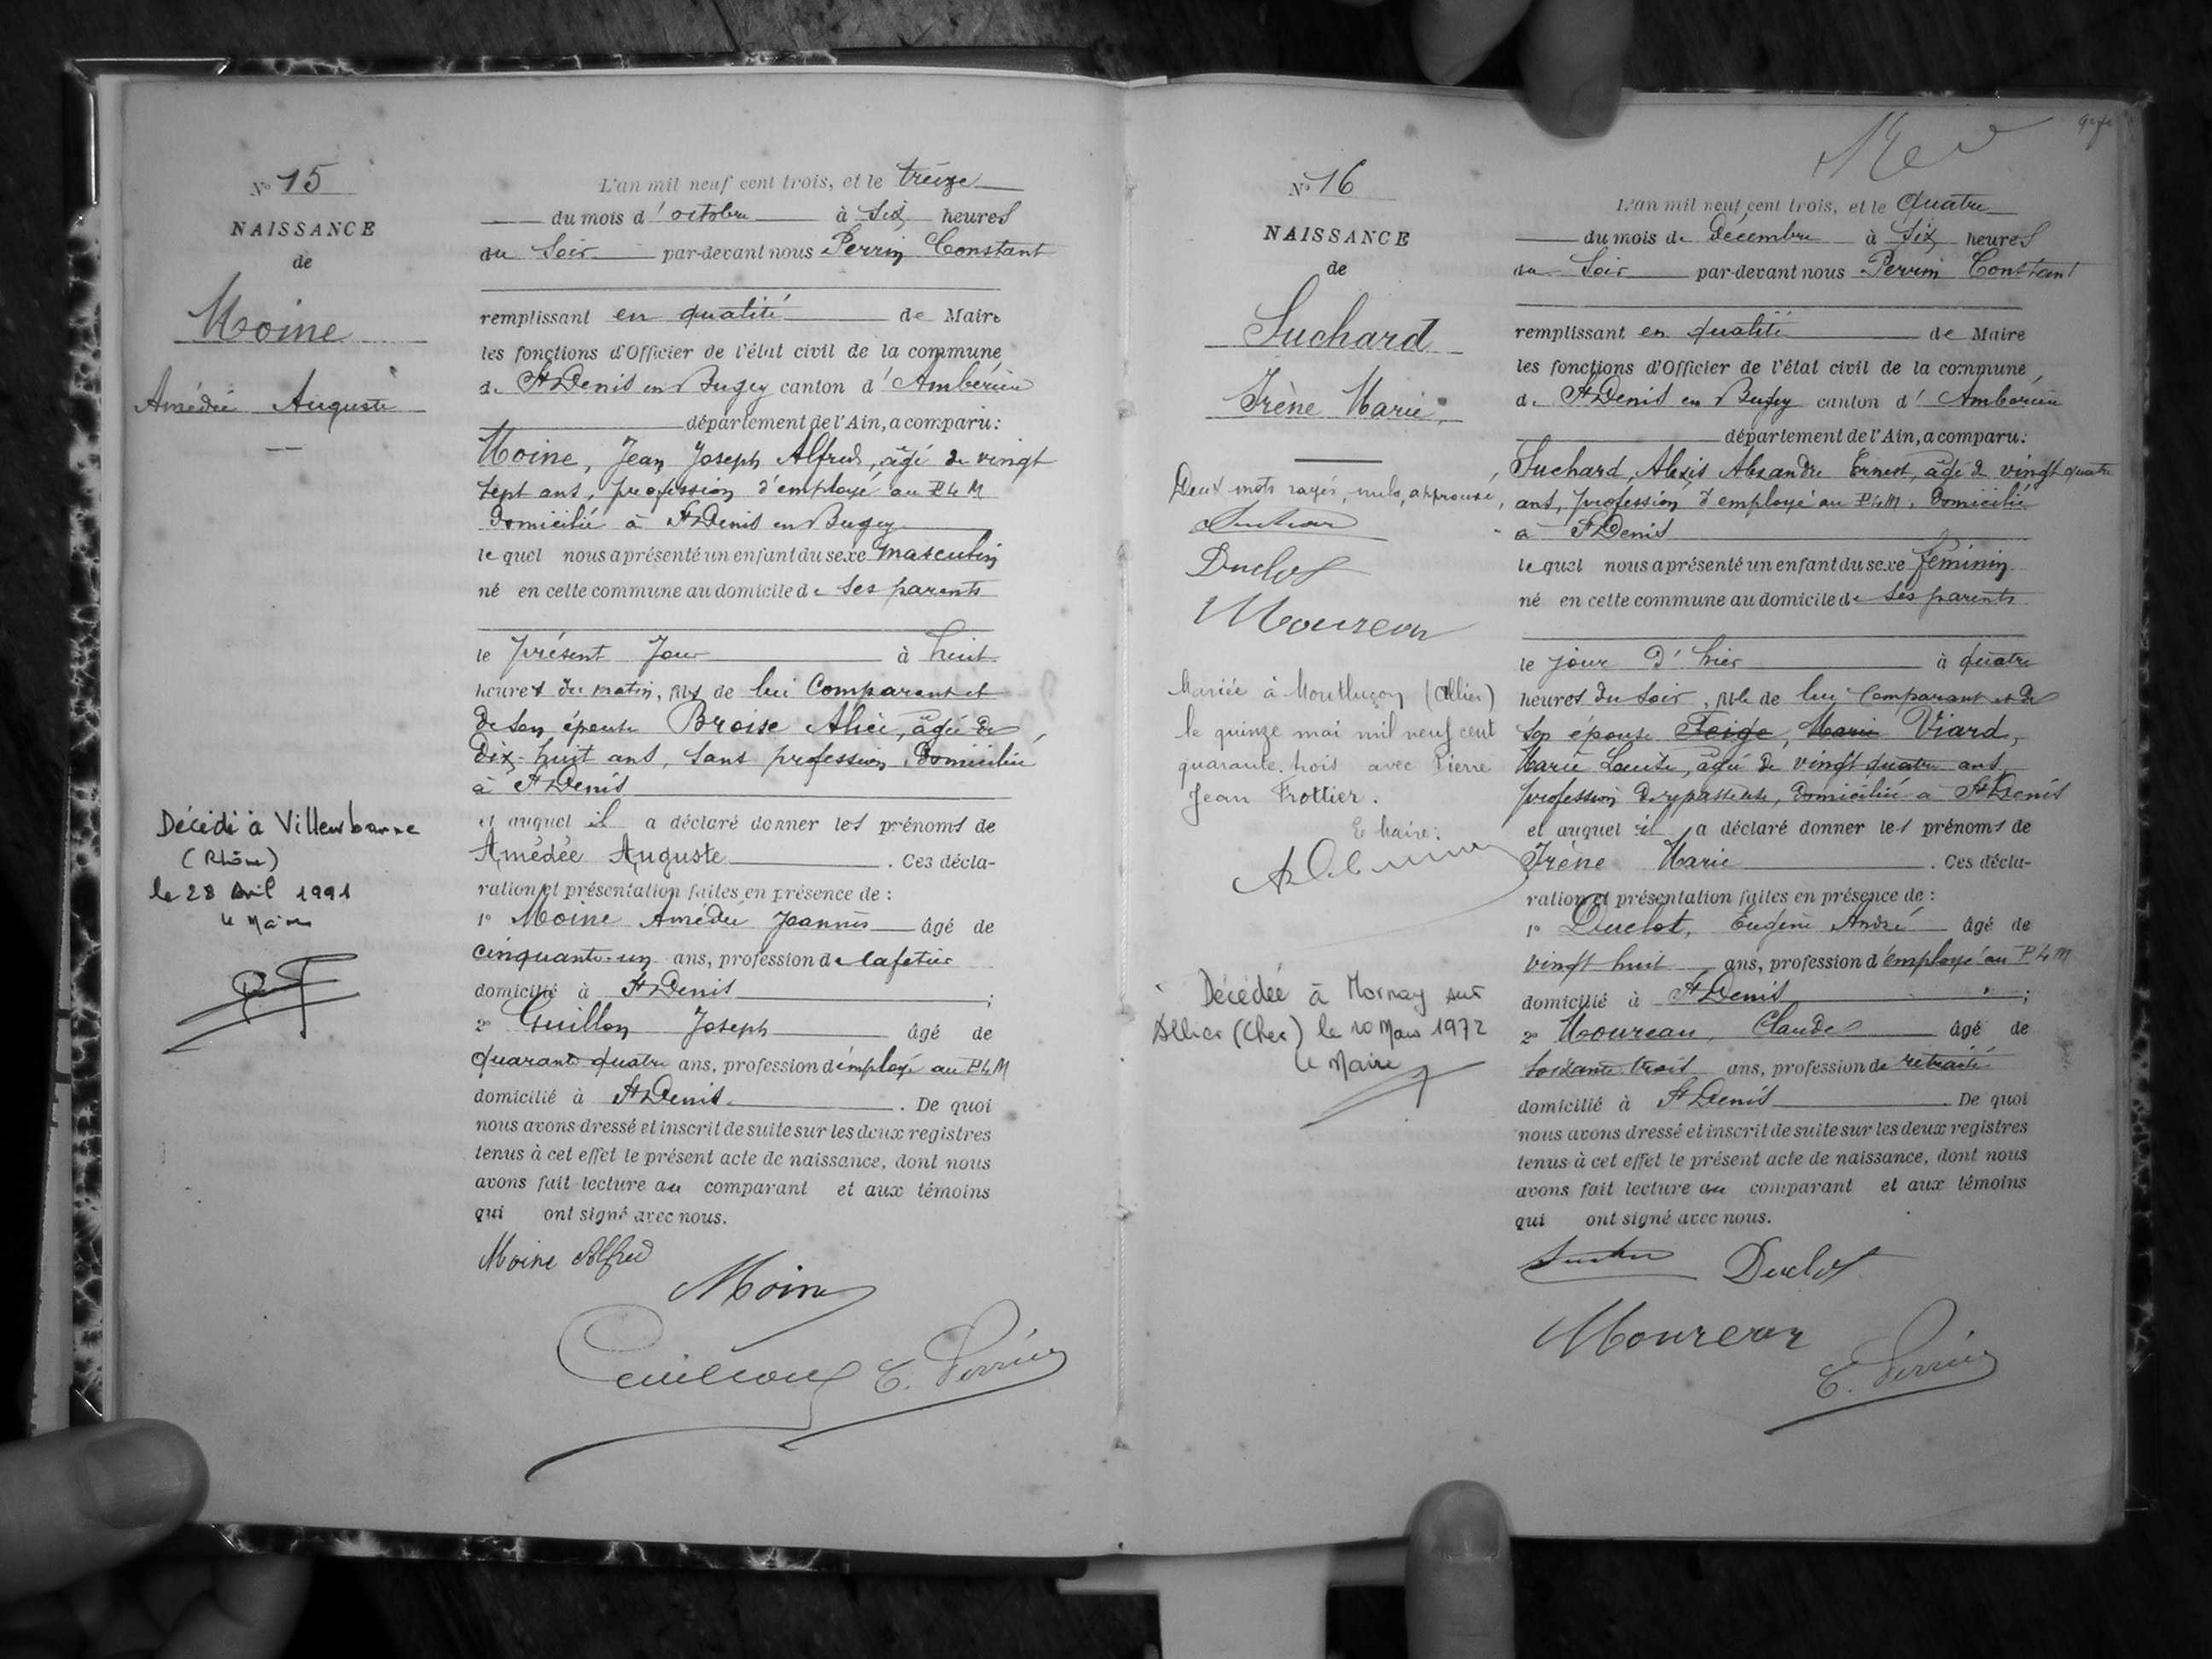 N° 15
NAISSANCE
de
Moine
Amédée Auguste
Décédé à Villeurbanne
(Rhône)
le 28 Avril 1991
le Maire
L'an mil neuf cent trois, et le treize
du mois d'octobre à six heures
du soir par-devant nous Perrin Constant
remplissant en qualité de Maire
les fonctions d'Officier de l'état civil de la commune
de St Denis en Bugey canton d'Ambérieu
département de l'Ain, a comparu:
Moine, Jean Joseph Alfred, âgé de vingt
sept ans, profession d'employé au PLM
domicilié à St Denis en Bugey
lequel nous a présenté un enfant du sexe masculin
né en cette commune au domicile de ses parents
le présent jour à huit
heures du matin, fils de lui comparant et
de son épouse Broise Alice, âgée de
dix-huit ans, sans profession, domiciliée
à St Denis
et auquel il a déclaré donner les prénoms de
Amédée Auguste. Ces décla-
ration et présentation faites en présence de :
1° Moine Amédée Joannès âgé de
cinquante-un ans, profession de cafetier
domicilié à St Denis ;
2° Guillon Joseph âgé de
quarante quatre ans, profession d'employé au PLM
domicilié à St Denis. De quoi
nous avons dressé et inscrit de suite sur les deux registres
tenus à cet effet le présent acte de naissance, dont nous
avons fait lecture au comparant et aux témoins
qui ont signé avec nous.
Moine Alfred
Moine
Guillon C. Perrin
N° 16
NAISSANCE
de
Suchard
Irène Marie
Deux mots rayés, nuls, approuvé,
Duclot
Moureau
Mariée à Montluçon (Allier)
le quinze mai mil neuf cent
quarante-trois avec Pierre
Jean Trottier.
Le Maire:
Décédée à Mornay sur
Allier (Cher) le 10 Mars 1972
Le Maire
L'an mil neuf cent trois, et le quatre
du mois de Décembre à six heures
du soir par-devant nous Perrin Constant
remplissant en qualité de Maire
les fonctions d'Officier de l'état civil de la commune
de St Denis en Bugey canton d'Ambérieu
département de l'Ain, a comparu:
Suchard, Alexis Alexandre Ernest, âgé de vingt quatre
ans, profession d'employé au PLM, domicilié
à St Denis
lequel nous a présenté un enfant du sexe féminin
né en cette commune au domicile de ses parents
le jour d'hier à quatre
heures du soir, fille de lui comparant et de
son épouse Feige, Marie Viard,
Marie Louise, âgée de vingt quatre ans
profession de repasseuse, domiciliée à St Denis
et auquel il a déclaré donner les prénoms de
Irène Marie. Ces décla-
ration et présentation faites en présence de :
1° Duclot, Eugène André âgé de
vingt huit ans, profession d'employé au PLM
domicilié à St Denis ;
2° Moureau, Claude âgé de
soixante trois ans, profession de retraité
domicilié à St Denis De quoi
nous avons dressé et inscrit de suite sur les deux registres
tenus à cet effet le présent acte de naissance, dont nous
avons fait lecture au comparant et aux témoins
qui ont signé avec nous.
Duclot
Moureau
C. Perrin